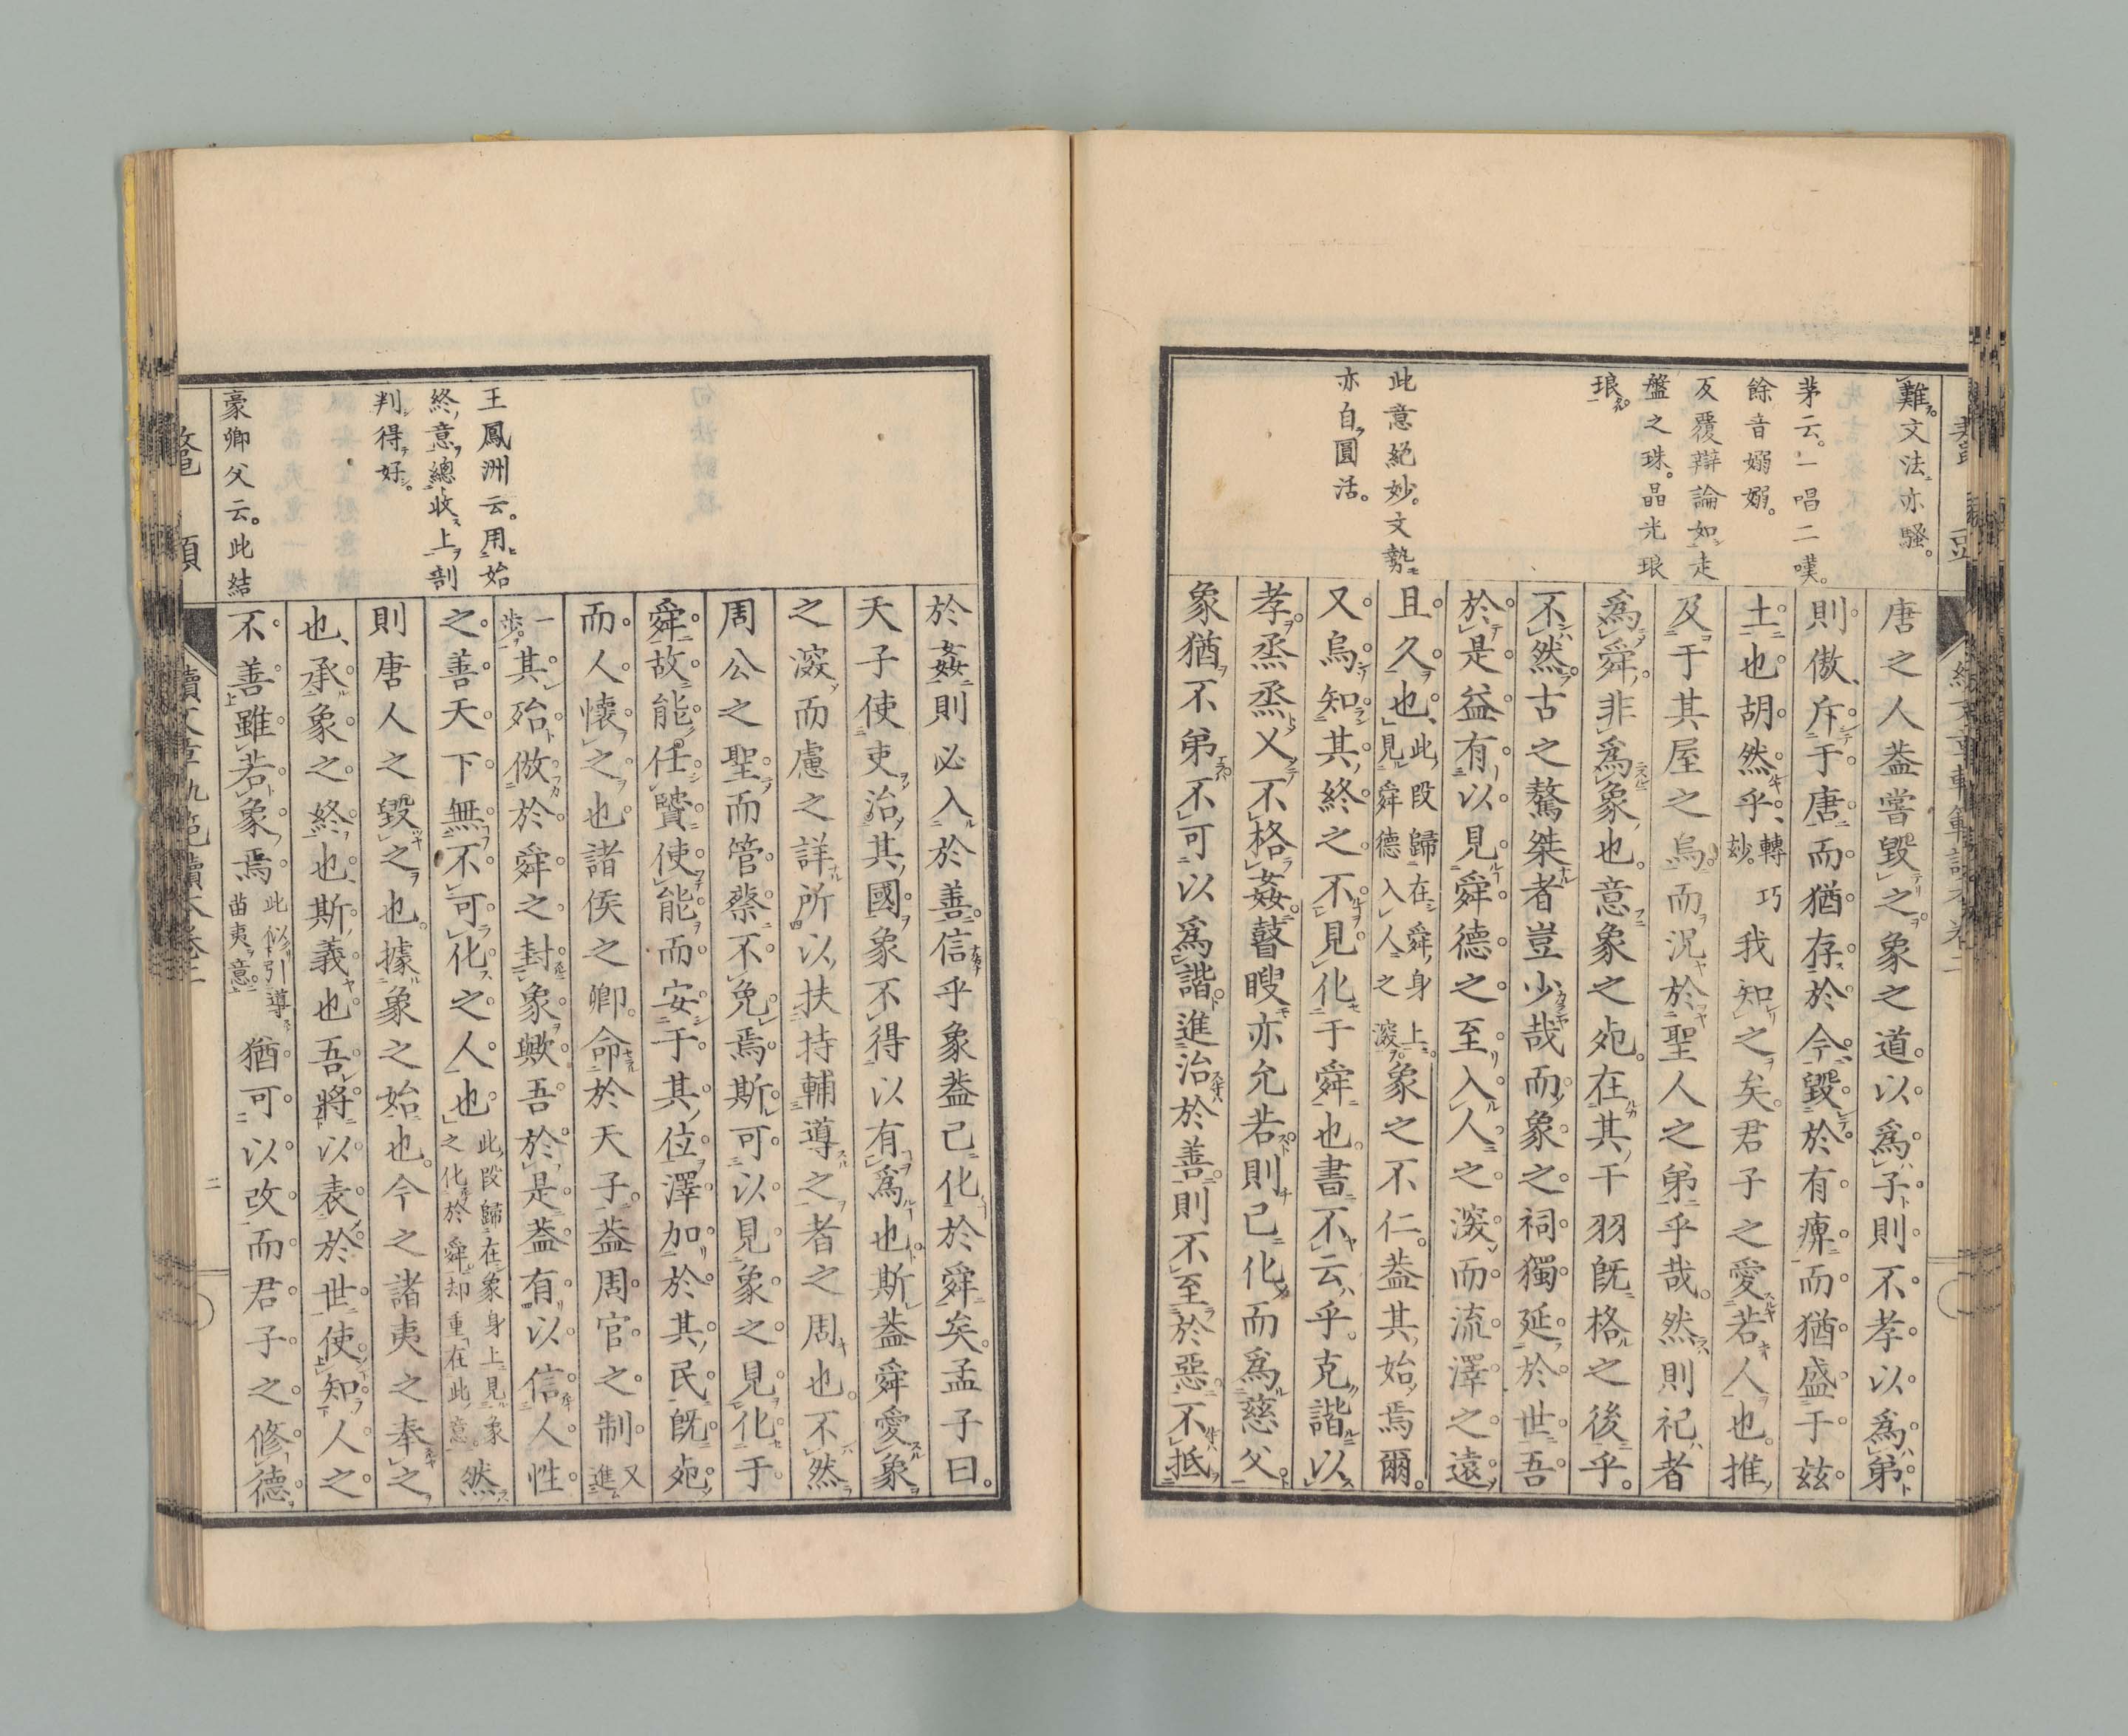 難文法亦騷。
茅云。一唱二嘆。
餘音嫋嫋。
反覆辯論如走
盤之珠。晶光琅
琅
此意絕妙。文勢
亦自圓活。
唐之人蓋嘗毀之象之道以爲子則不孝以爲弟
則傲斥于唐而猶存於今毀於有痺而猶盛于玆
土也胡然乎、轉巧妙我知之矣。君子之愛若人也。推
及于其屋之烏。而況於聖人之弟乎哉。然則祀者
爲舜、非爲象也。意象之死。在其干羽既格之後乎。
不然古之驁桀者豈少哉而象之祠獨延於世吾
於是益有以見舜德之至入人之深而流澤之遠
且久也、此段歸在舜身上見舜德入人之深象之不仁。蓋其始焉爾。
又烏知其終之不見化于舜也。書不云乎。克諧以
孝烝烝乂不格姦瞽瞍亦允若則已化而爲慈父
象猶不弟不可以爲諧進治於善則不至於惡不抵
於姦則必入於善信乎象蓋已化於舜矣孟子曰。
天子使吏治其國象不得以有爲也斯蓋舜愛象
之深而慮之詳所以扶持輔導之者之周也。不然
周公之聖而管蔡不免焉斯可以見象之見化于
舜故能任賢使能而安于其位澤加於其民既死
而人懷之也諸侯之卿。命於天子蓋周官之制又進
一步其殆倣於舜之封象歟吾於是蓋有以信人性
之善天下無不可化之人也此段歸在象身上見象之化於舜却重在此意然
則唐人之毀之也。據象之始也。今之諸夷之奉之
也、承象之終也、斯義也吾將以表於世使知人之
不善雖若象焉此似引導苗夷意猶可以改而君子之修德
王鳳洲云。用始
終意總收上剖
判得好。
豪卿父云。此結
二